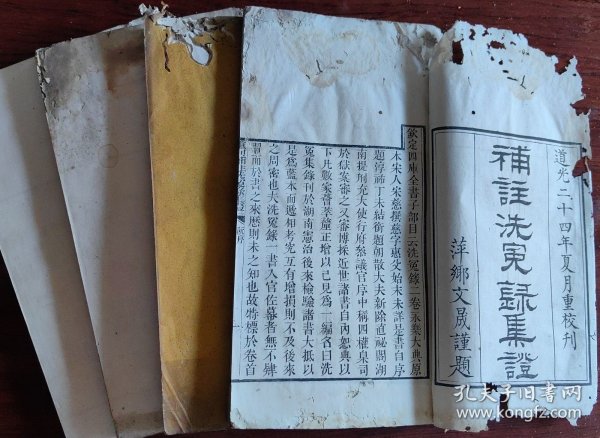 道光二十四年夏月重校刊
補註洗冤録集證
萍鄉文晟謹題
欽定四庫全書子部目云洗冤錄二卷永樂大典原
本宋人宋慈撰慈字惠父始末未詳是書自序
題淳祐丁未結銜題朝散大夫新除直祕閣湖
南提刑充大使行府參議官序中稱四權臬司
於獄案審之又審博採近世諸書自內恕典以
下凡數家薈萃釐正增以己見為一編名曰洗
冤集錄刊於湖南憲治後來檢驗諸書大抵以
是為藍本而遞相考究互有增損則不及後來
之周密也夫洗冤錄一書入官佐幕者無不肄
習而於書之來歷則未之知也故特標於卷首
孔夫子旧书网
www.kongfz.com